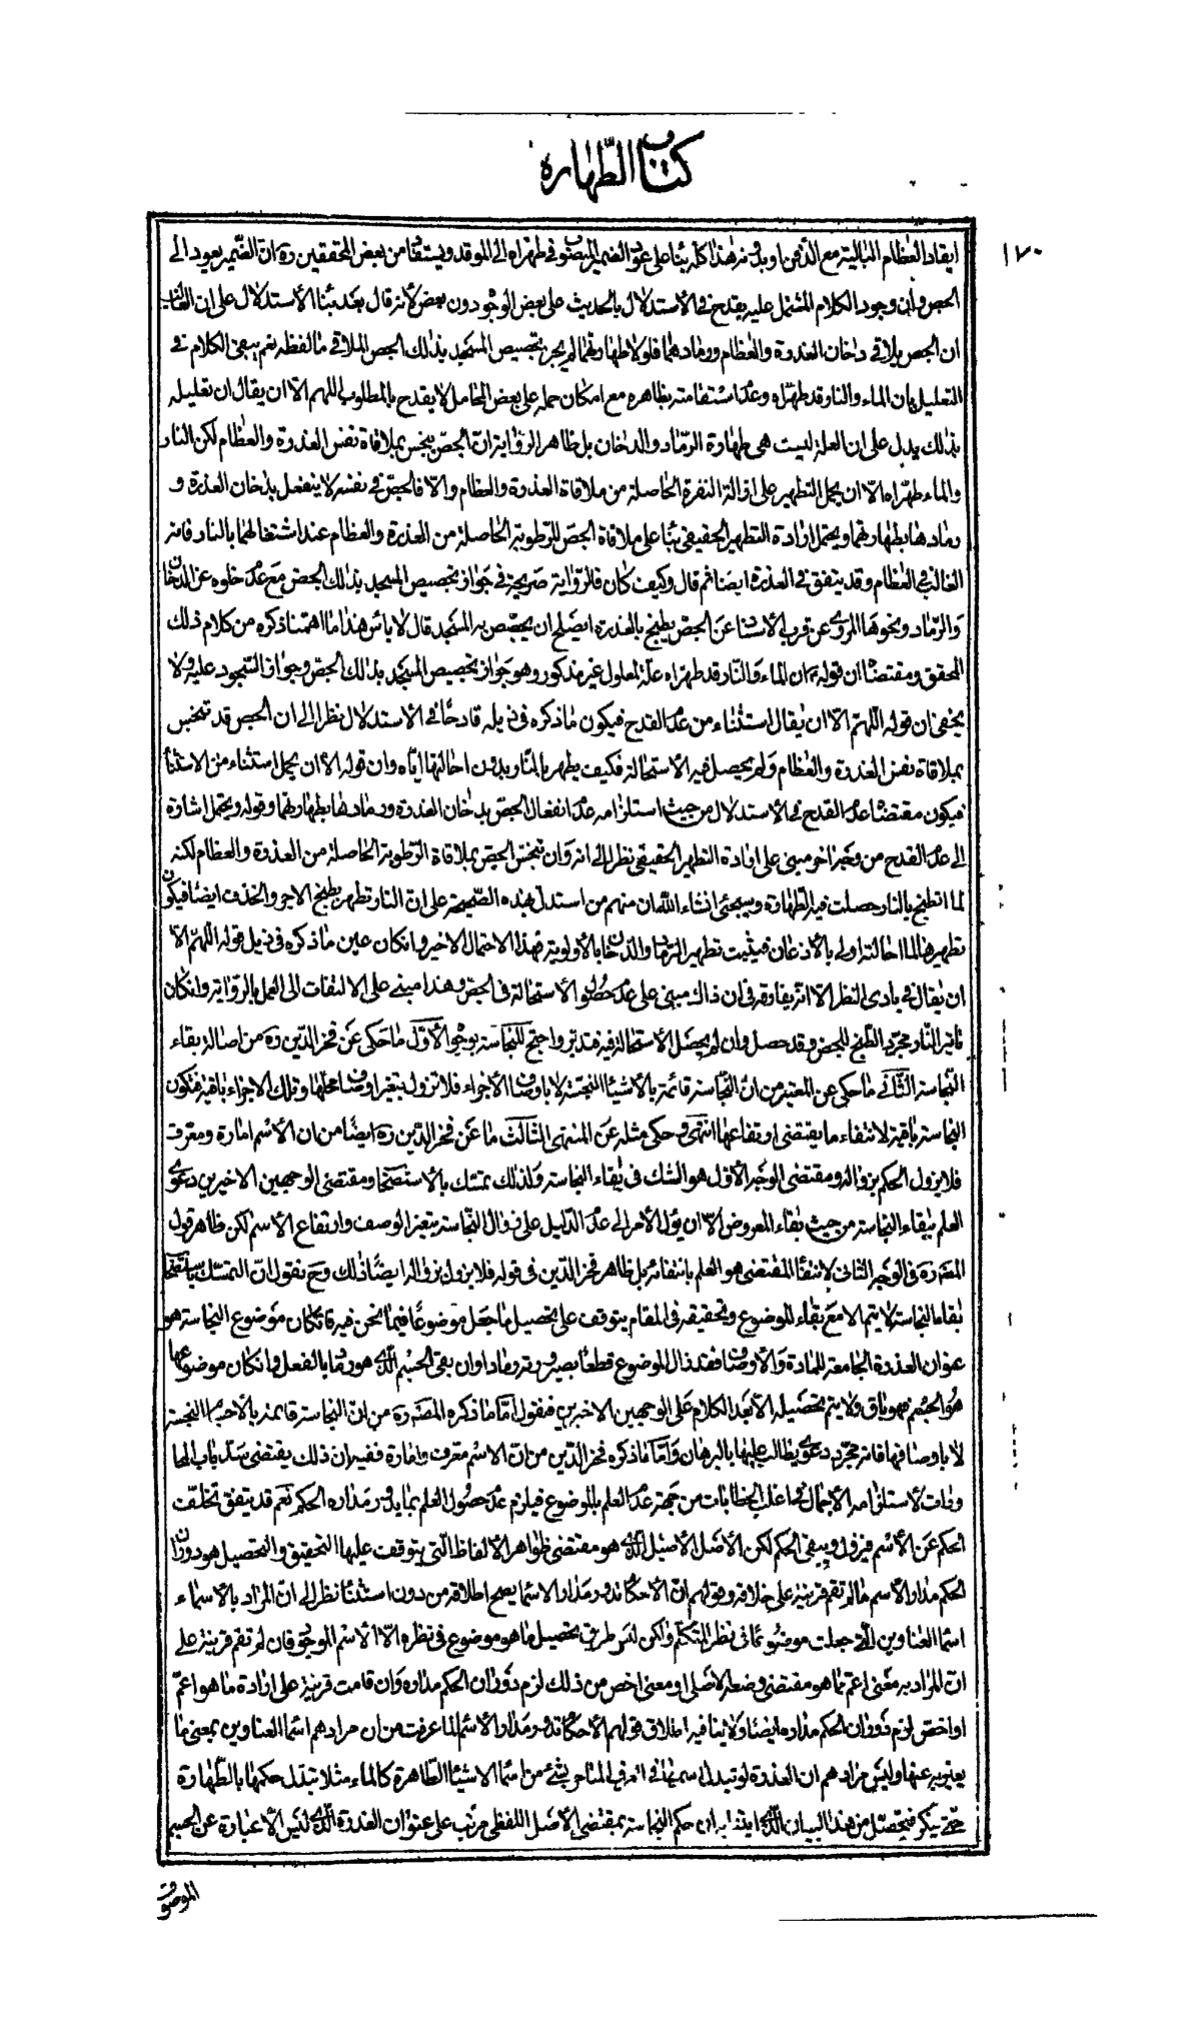 كتاب الطهارة
١٧٠
ايقاد العظام البالية مع الدهن او بدونه هذا كله بناء على عود الضمير المنصوب في طهراه الى الموقد ويستفاد من بعض المحققين ره ان الضمير يعود الى
الجص وان وجود الكلام المشتمل عليه يقدح في الاستدلال بالحديث على بعض الوجوه دون بعض لانه قال بعد بناء الاستدلال على ان الغالب
ان الجص يلاقي دخان العذرة والعظام ورمادهما فلولا طهارتهما لم يجز تجصيص المسجد بذلك الجص الملاقي ما لفظه نعم يبقى الكلام في
التعليل بان الماء والنار قد طهراه وعدم استقامته بظاهره مع امكان حمله على بعض المحامل لا يقدح بالمطلوب اللهم الا ان يقال ان تعليله
بذلك يدل على ان العلة ليست هي طهارة الرماد والدخان بل ظاهر الرواية ان الجص نجس بملاقاة نفس العذرة والعظام لكن النار
والماء طهراه الا ان يحمل التطهير على ازالة النفرة الحاصلة من ملاقاة العذرة والعظام والا فالجص في نفسه لا ينفعل بدخان العذرة و
رمادها بطهارتهما ويحتمل ارادة التطهير الحقيقي بناء على ملاقاة الجص للرطوبة الحاصلة من العذرة والعظام عند اشتعالهما بالنار فانه
الغالب في العظام وقد يتفق في العذرة ايضا ثم قال وكيف كان فالرواية صريحة في جواز تجصيص المسجد بذلك الجص مع عدم خلوه عن الدخان
والرماد ونحوها المروي عن قرب الاسناد عن الجص يطبخ بالعذرة ايصلح ان يجصص به المسجد قال لا باس هذا ما اهمنا ذكره من كلام ذلك
المحقق ومقتضاه ان قوله ع ان الماء والنار قد طهراه علة لمعلول غير مذكور وهو جواز تجصيص المسجد بذلك الجص وجواز السجود عليه ولا
يخفى ان قوله اللهم الا ان يقال استثناء من عدم القدح فيكون ما ذكره في ذيله قادحا في الاستدلال نظرا الى ان الجص قد تنجس
بملاقاة نفس العذرة والعظام ولم يحصل فيه الاستحالة فكيف يطهر بالنار بدون احالتها اياه وان قوله الا ان يحمل استثناء من الاستثناء
فيكون مقتضاه عدم القدح في الاستدلال من حيث استلزامه عدم انفعال الجص بدخان العذرة ورمادها بطهارتهما وقوله ويحتمل اشارة
الى عدم القدح من وجه اخر مبني على ارادة التطهير الحقيقي نظرا الى انه وان تنجس الجص بملاقاة الرطوبة الحاصلة من العذرة والعظام لكنه
لما انطبخ بالنار حصلت فيه الطهارة وسيجئ انشاء الله ان منهم من استدل بهذه الصحيحة على ان النار تطهر بطبخ الاجر والخزف ايضا فيكون
تطهيرها لما احالته اولى بالاذعان فيثبت تطهير الرماد والدخان بالاولوية فهذا الاحتمال الاخير وان كان عين ما ذكره في ذيل قوله اللهم الا
ان يقال في بادى النظر الا انه يفارقه في ان ذاك مبنى على عدم حصول الاستحالة في الجص وهذا مبني على الالتفات الى العمل بالرواية وان كان
تاثير النار مجرد الطبخ للجص وقد حصل وان لم يحصل الاستحالة فيه فتدبر واحتج للنجاسة بوجوه الاول ما حكى عن فخر الدين ره من اصالة بقاء
النجاسة الثاني ما حكي عن المعتبر من ان النجاسة قائمة بالاشياء النجسة لا باوصاف الاجزاء فلا تزول بتغير اوصاف محلها وتلك الاجزاء باقية فتكون
النجاسة باقية لانتفاء ما يقتضى ارتفاعها انتهى وحكى مثله عن المنتهى الثالث ما عن فخر الدين ره ايضا من ان الاسم امارة ومعرف
فلا يزول الحكم بزواله ومقتضى الوجه الاول هو الشك في بقاء النجاسة ولذلك تمسك بالاستصحاب ومقتضى الوجهين الاخيرين دعوى
العلم ببقاء النجاسة من حيث بقاء المعروض الا ان يؤل الامر الى عدم الدليل على زوال النجاسة بتغير الوصف وارتفاع الاسم لكن ظاهر قول
المصنف ره في الوجه الثاني لانتفاء المقتضى هو العلم بانتفائه بل ظاهر فخر الدين في قوله فلا يزول بزواله ايضا ذلك وح نقول ان التمسك باستصحاب
بقاء النجاسة لا يتم الا مع بقاء الموضوع وتحقيقه في المقام يتوقف على تحصيل ما جعل موضوعا فيما نحن فيه فان كان موضوع النجاسة هو
عنوان العذرة الجامعة للمادة والاوصاف فقد زال الموضوع قطعا بصيرورته رمادا وان بقي الجسم الذي هو رماد بالفعل وان كان موضوعها
هو الجسم فهو باق ولا يتم تحصيله الا بعد الكلام على الوجهين الاخيرين فنقول اما ما ذكره المصنف ره من ان النجاسة قائمة بالاجسام النجسة
لا باوصافها فانه مجرد دعوى يطالب عليها بالبرهان واما ما ذكره فخر الدين من ان الاسم معرف وامارة ففيه ان ذلك يقتضى سد باب المحا
ورات لاستلزامه الاجمال في اغلب الخطابات من جهة عدم العلم بالموضوع فيلزم عدم حصول العلم بما يدور مداره الحكم نعم قد يتفق تخلف
الحكم عن الاسم فيزول ويبقى الحكم لكن الاصل الاصيل الذي هو مقتضى ظواهر الالفاظ التي يتوقف عليها التحقيق والتحصيل هو دوران
الحكم مدار الاسم ما لم تقم قرينة على خلافه وقولهم ان الاحكام تدور مدار الاسماء يصح اطلاقه من دون استثناء نظرا الى ان المراد بالاسماء
اسماء العناوين التي جعلت موضوعا في نظر المتكلم ولكن ليس طريق تحصيل ما هو موضوع في نظره الا الاسم الموجود فان لم تقم قرينة على
ان المراد به معنى اعم مما هو مقتضى وضعه الاصلى او معنى اخص من ذلك لزم دوران الحكم مداره وان قامت قرينة على ارادة ما هو اعم
او اخص لزم دوران الحكم مداره ايضا ولا ينافيه اطلاق قولهم الاحكام تدور مدار الاسم لما عرفت من ان مرادهم اسماء العناوين بمعنى ما
يعبر به عنها وليس مرادهم ان العذرة لو تبدل اسمها في العرف المتاخر بشئ من اسماء الاشياء الطاهرة كالماء مثلا تبدل حكمها بالطهارة
حتى ينكر فتحصل من هذا البيان الذي ابتداء به ان حكم النجاسة بمقتضى الاصل اللفظى مرتب على عنوان العذرة الذي ليس الا عبارة عن الجسم
الموصوف